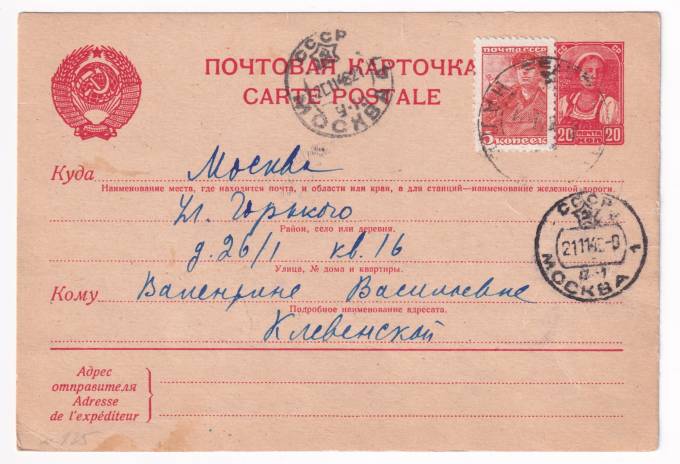 ПОЧТОВАЯ КАРТОЧКА
CARTE POSTALE
СССР
МОСКВА
ПОЧТА СССР
5 копеек
20 ПОЧТА 20
КОП.
Куда Москва
Наименование места, где находится почта, и области или края, а для станций—наименование железной дороги.
Ул. Горького
Район, село или деревня.
д. 26/1 кв. 16
Улица, № дома и квартиры.
СССР
211145-0
МОСКВА 1
Кому Валентине Васильевне
Подробное наименование адресата.
Клевенской
Адрес
отправителя
Adresse
de l'expéditeur
125